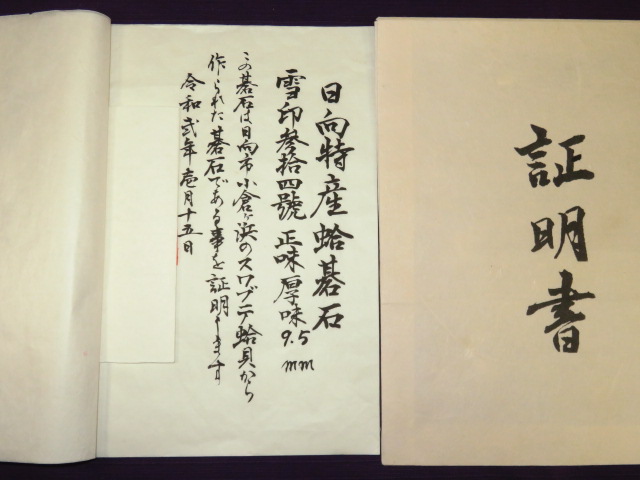 証明書
日向特産蛤碁石
雪印参拾四號 正味厚味9.5mm
この碁石は日向市小倉ヶ浜のスワブテ蛤貝から
作られた碁石である事を証明します
令和弐年壱月十五日